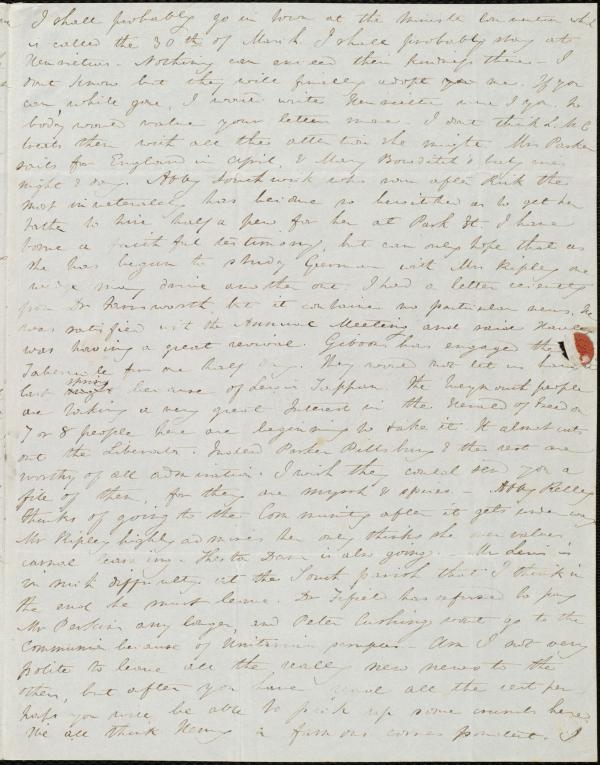 I shall probably go in town at the Miracle Convention wh
is called the 30th of March. I shall probably stay at
Henrietta's - Nothing can exceed their kindness there - I
dont know but they will finally adopt me. If you
can, while gone, I would write Henrietta were I you. No
body would value your letters more. I dont think L.M.C
treats them with all the attention she might. Mrs Parker
sails for England in April, & Mary Bowditch's baby
night & day. Abby Southwick who ran after Kirk the
most inveterately has become so bewitched as to get her
father to hire half a pew for her at Park St. I have
borne a faithful testimony, but can only hope that as
she has begun to study German with Mrs Ripley one
may drive another out. I had a letter recently
from Dr Farnsworth but it contains no particular news. He
was satisfied with the Annual Meeting and said
was having a great revival. Gibbons has engaged the
Tabernacle for me half day. They would not let us have it
last spring because of Lewis Tappan. The Weymouth people
are taking a very great interest in the Herald of Freedom
7 or 8 people here are beginning to take it. It almost cuts
out the Liberator. Indeed Parker Pillsbury & the rest are
worthy of all admiration. I wish they could send you a
file of them, for they are myrrh & spices. - Abby Kelley
thinks of going to the Community after it gets under way
Mr Ripley highly admires her only thinks she over values
carnal reasoning. Thesta Dana is also going. - Mr Lewis is
in such difficulty at the South parish that I think in
the end he must leave. Dr Fifield has refused to pay
Mr Perkins any longer, and Peter Cushing wont go to the
communion because of Unitarian scruples - Am I not very
polite to leave all the really new news to the
others, but after you have read all the rest per
haps you will be able to pick up some crumbs here.
We all think Henry a famous correspondent. I